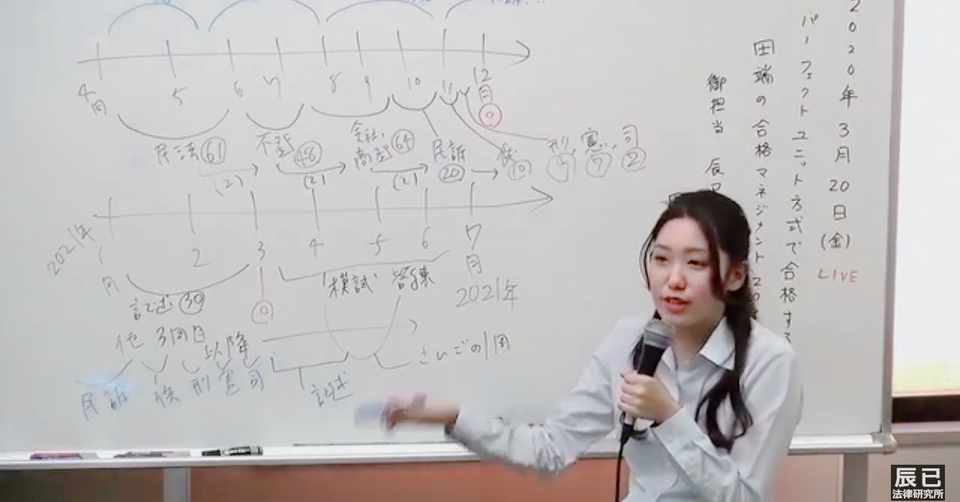 2020年3月20日(金) LIVE
パーフェクトユニット方式で合格する
田端の合格マネジメント20
御担当 辰已
4月 5 6 7 8 9 10 11 12月
民法 61 不登 48 会社 商登 64 民訴 20 → 供 10 刑 5 憲 7 司 2
(2) (2) (2)
2021年 1月 2 3 4 5 6 7月
記述 30
模試 答練
2021年
他 3周目以降
民訴 供 刑 憲 司
記述
さいごの1周
辰已
法律研究所